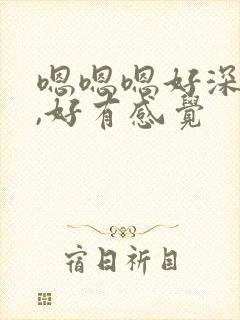 嗯嗯嗯好深
,好有感覺
宿日祈目